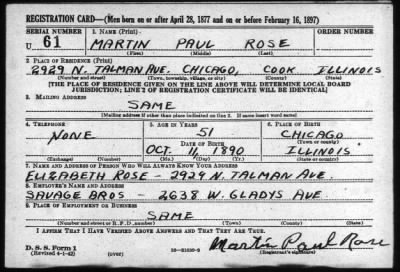 REGISTRATION CARD—(Men born on or after April 28, 1877 and on or before February 16, 1897)
SERIAL NUMBER 1. NAME (Print) ORDER NUMBER
U 61 MARTIN PAUL ROSE
(First) (Middle) (Last)
2. PLACE OF RESIDENCE (Print)
2929 N. TALMAN AVE. CHICAGO, COOK ILLINOIS
(Number and street) (Town, township, village, or city) (County) (State)
[THE PLACE OF RESIDENCE GIVEN ON THE LINE ABOVE WILL DETERMINE LOCAL BOARD
JURISDICTION; LINE 2 OF REGISTRATION CERTIFICATE WILL BE IDENTICAL]
3. MAILING ADDRESS
SAME
(Mailing address if other than place indicated on line 2. If same insert word same)
4. TELEPHONE 5. AGE IN YEARS 6. PLACE OF BIRTH
NONE 51 CHICAGO
DATE OF BIRTH (Town or county)
OCT. 11, 1890 ILLINOIS
(Exchange) (Number) (Mo.) (Day) (Yr.) (State or country)
7. NAME AND ADDRESS OF PERSON WHO WILL ALWAYS KNOW YOUR ADDRESS
ELIZABETH ROSE - 2929 N. TALMAN AVE.
8. EMPLOYER'S NAME AND ADDRESS
SAVAGE BROS - 2638 W. GLADYS AVE
9. PLACE OF EMPLOYMENT OR BUSINESS
SAME
(Number and street or R. F. D. number) (Town) (County) (State)
I AFFIRM THAT I HAVE VERIFIED ABOVE ANSWERS AND THAT THEY ARE TRUE.
D. S. S. Form 1
(Revised 4-1-42) (over) Martin Paul Rose
(Registrant's signature)